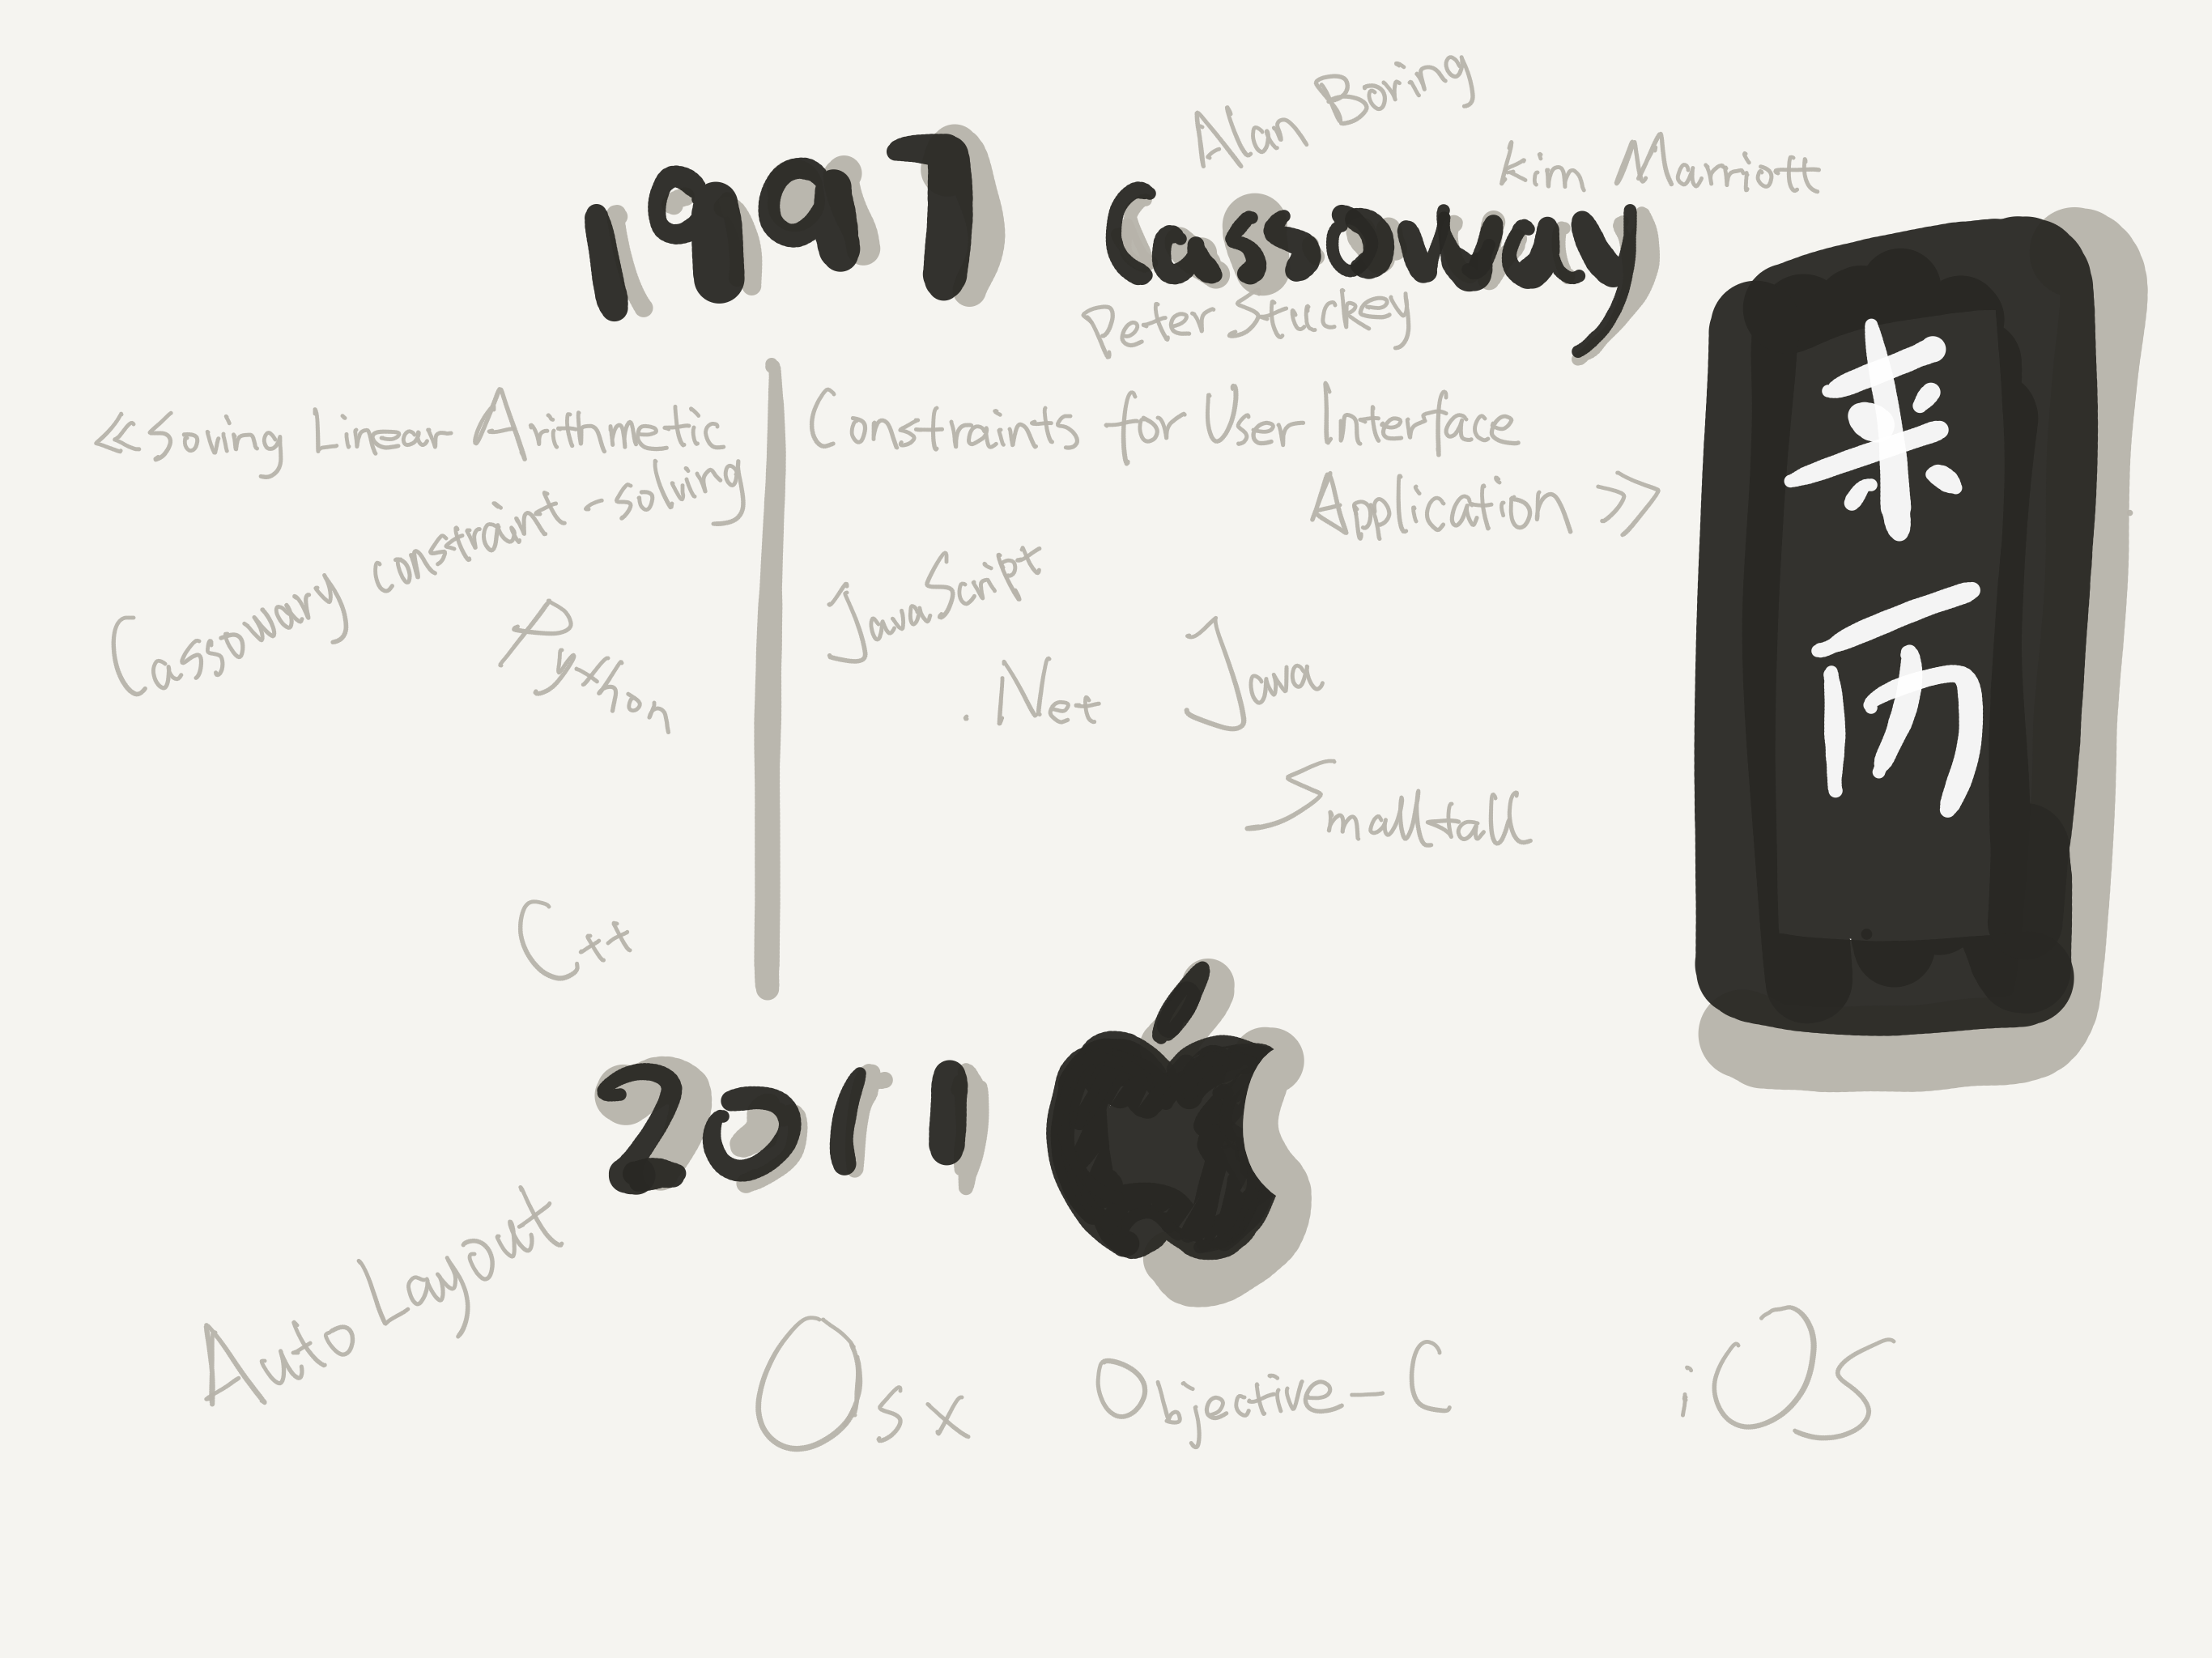 Alan Boring
Kim Marriott
1997
Cassoway
Peter Stuckey
来历
<<Soving Linear Arithmetic Constraints for User Interface
Application >>
Cassowary constraint-solving
Python
JavaScript
.Net
Java
Smalltall
C++
2011
Auto Layout
Osx
Objective-C
iOS